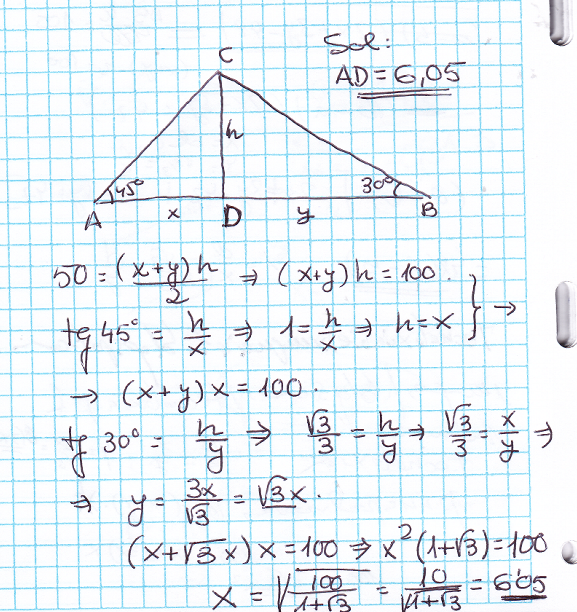 Sol:
AD = 6,05
C
h
45°
30°
A
x
D
y
B
50 = (x+y)h/2 ⇒ (x+y)h = 100.
tg 45° = h/x ⇒ 1 = h/x ⇒ h = x } →
→ (x+y)x = 100.
tg 30° = h/y ⇒ √3/3 = h/y ⇒ √3/3 = x/y ⇒
⇒ y = 3x/√3 = √3x.
(x+√3x)x = 100 ⇒ x²(1+√3) = 100
x = √(100/(1+√3)) = 10/√(1+√3) = 6'05